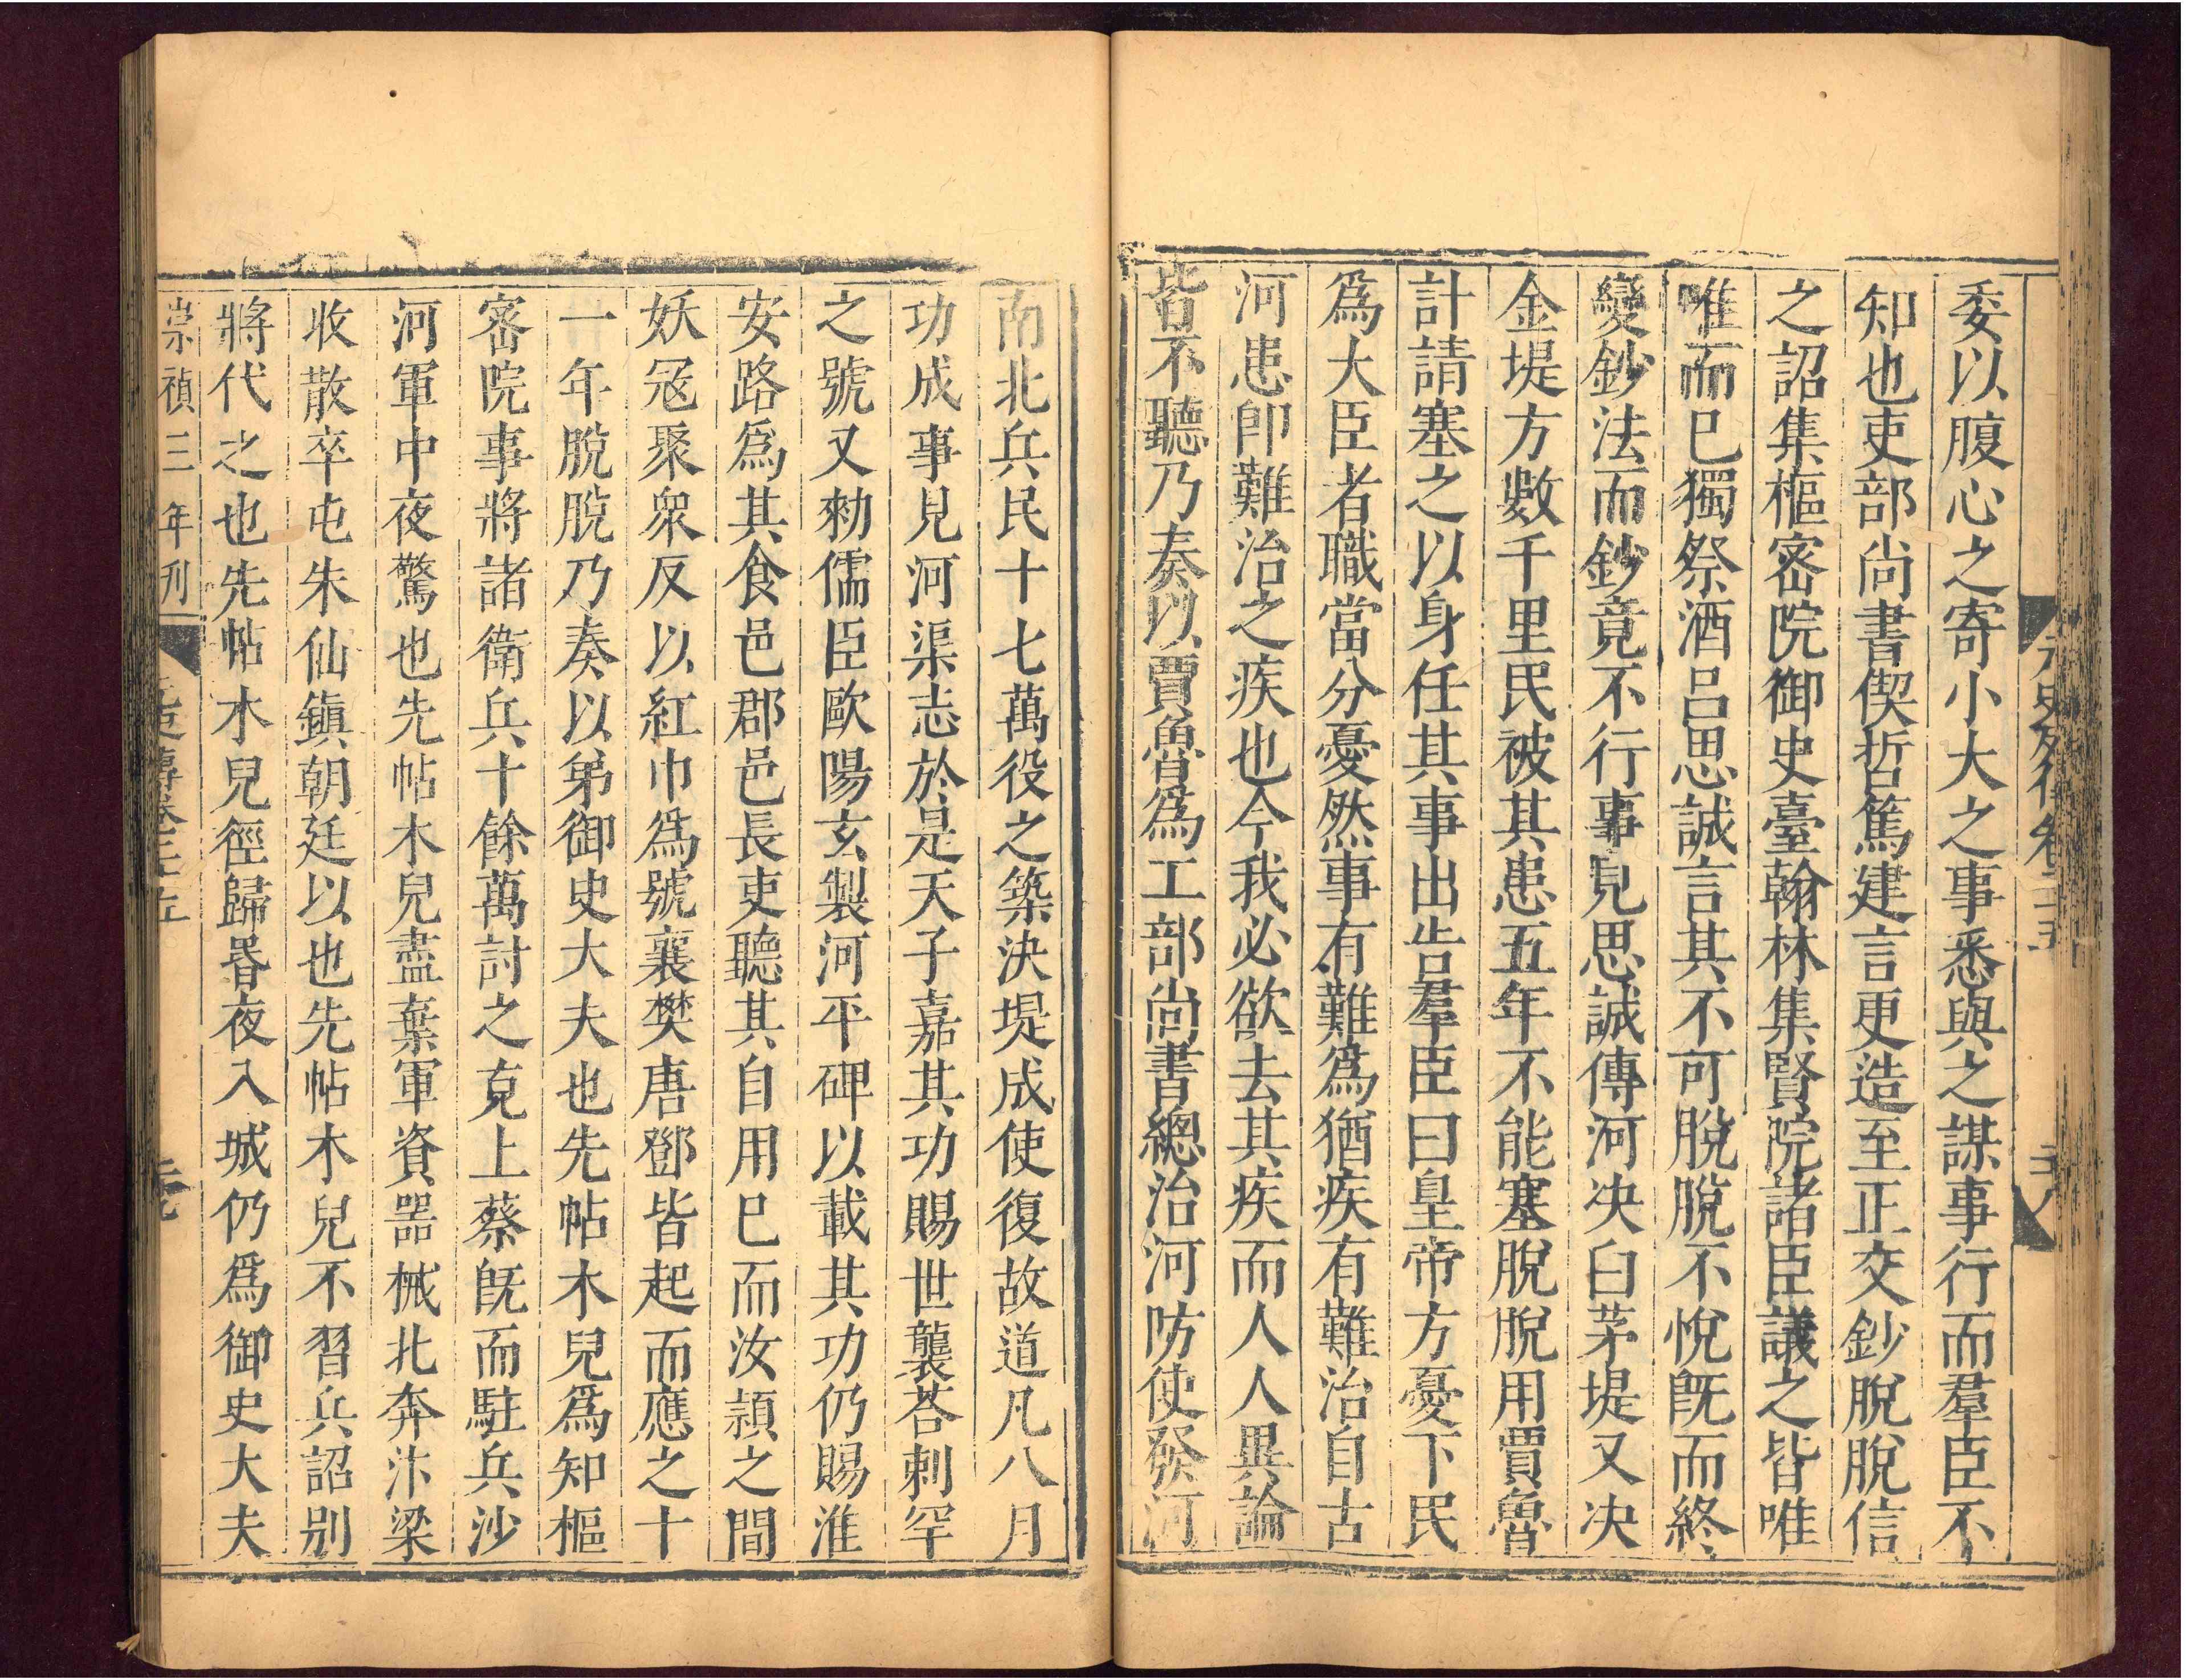 委以腹心之寄小大之事悉與之謀事行而羣臣不
知也吏部尚書偰哲篤建言更造至正交鈔脫脫信
之詔集樞密院御史臺翰林集賢院諸臣議之皆唯
唯而已獨祭酒呂思誠言其不可脫脫不悅旣而終
變鈔法而鈔竟不行事見思誠傳河决白茅堤又决
金堤方數千里民被其患五年不能塞脫脫用賈魯
計請塞之以身任其事出告羣臣曰皇帝方憂下民
爲大臣者職當分憂然事有難爲猶疾有難治自古
河患卽難治之疾也今我必欲去其疾而人人異論
皆不聽乃奏以賈魯爲工部尚書總治河防使發河
南北兵民十七萬役之築決堤成使復故道凡八月
功成事見河渠志於是天子嘉其功賜世襲荅剌罕
之號又勑儒臣歐陽玄製河平碑以載其功仍賜淮
安路爲其食邑郡邑長吏聽其自用已而汝潁之間
妖寇聚衆反以紅巾爲號襄樊唐鄧皆起而應之十
一年脫脫乃奏以弟御史大夫也先帖木兒爲知樞
密院事將諸衛兵十餘萬討之克上蔡旣而駐兵沙
河軍中夜驚也先帖木兒盡棄軍資器械北奔汴梁
收散卒屯朱仙鎮朝廷以也先帖木兒不習兵詔別
將代之也先帖木兒徑歸昏夜入城仍爲御史大夫
崇禎三年刊